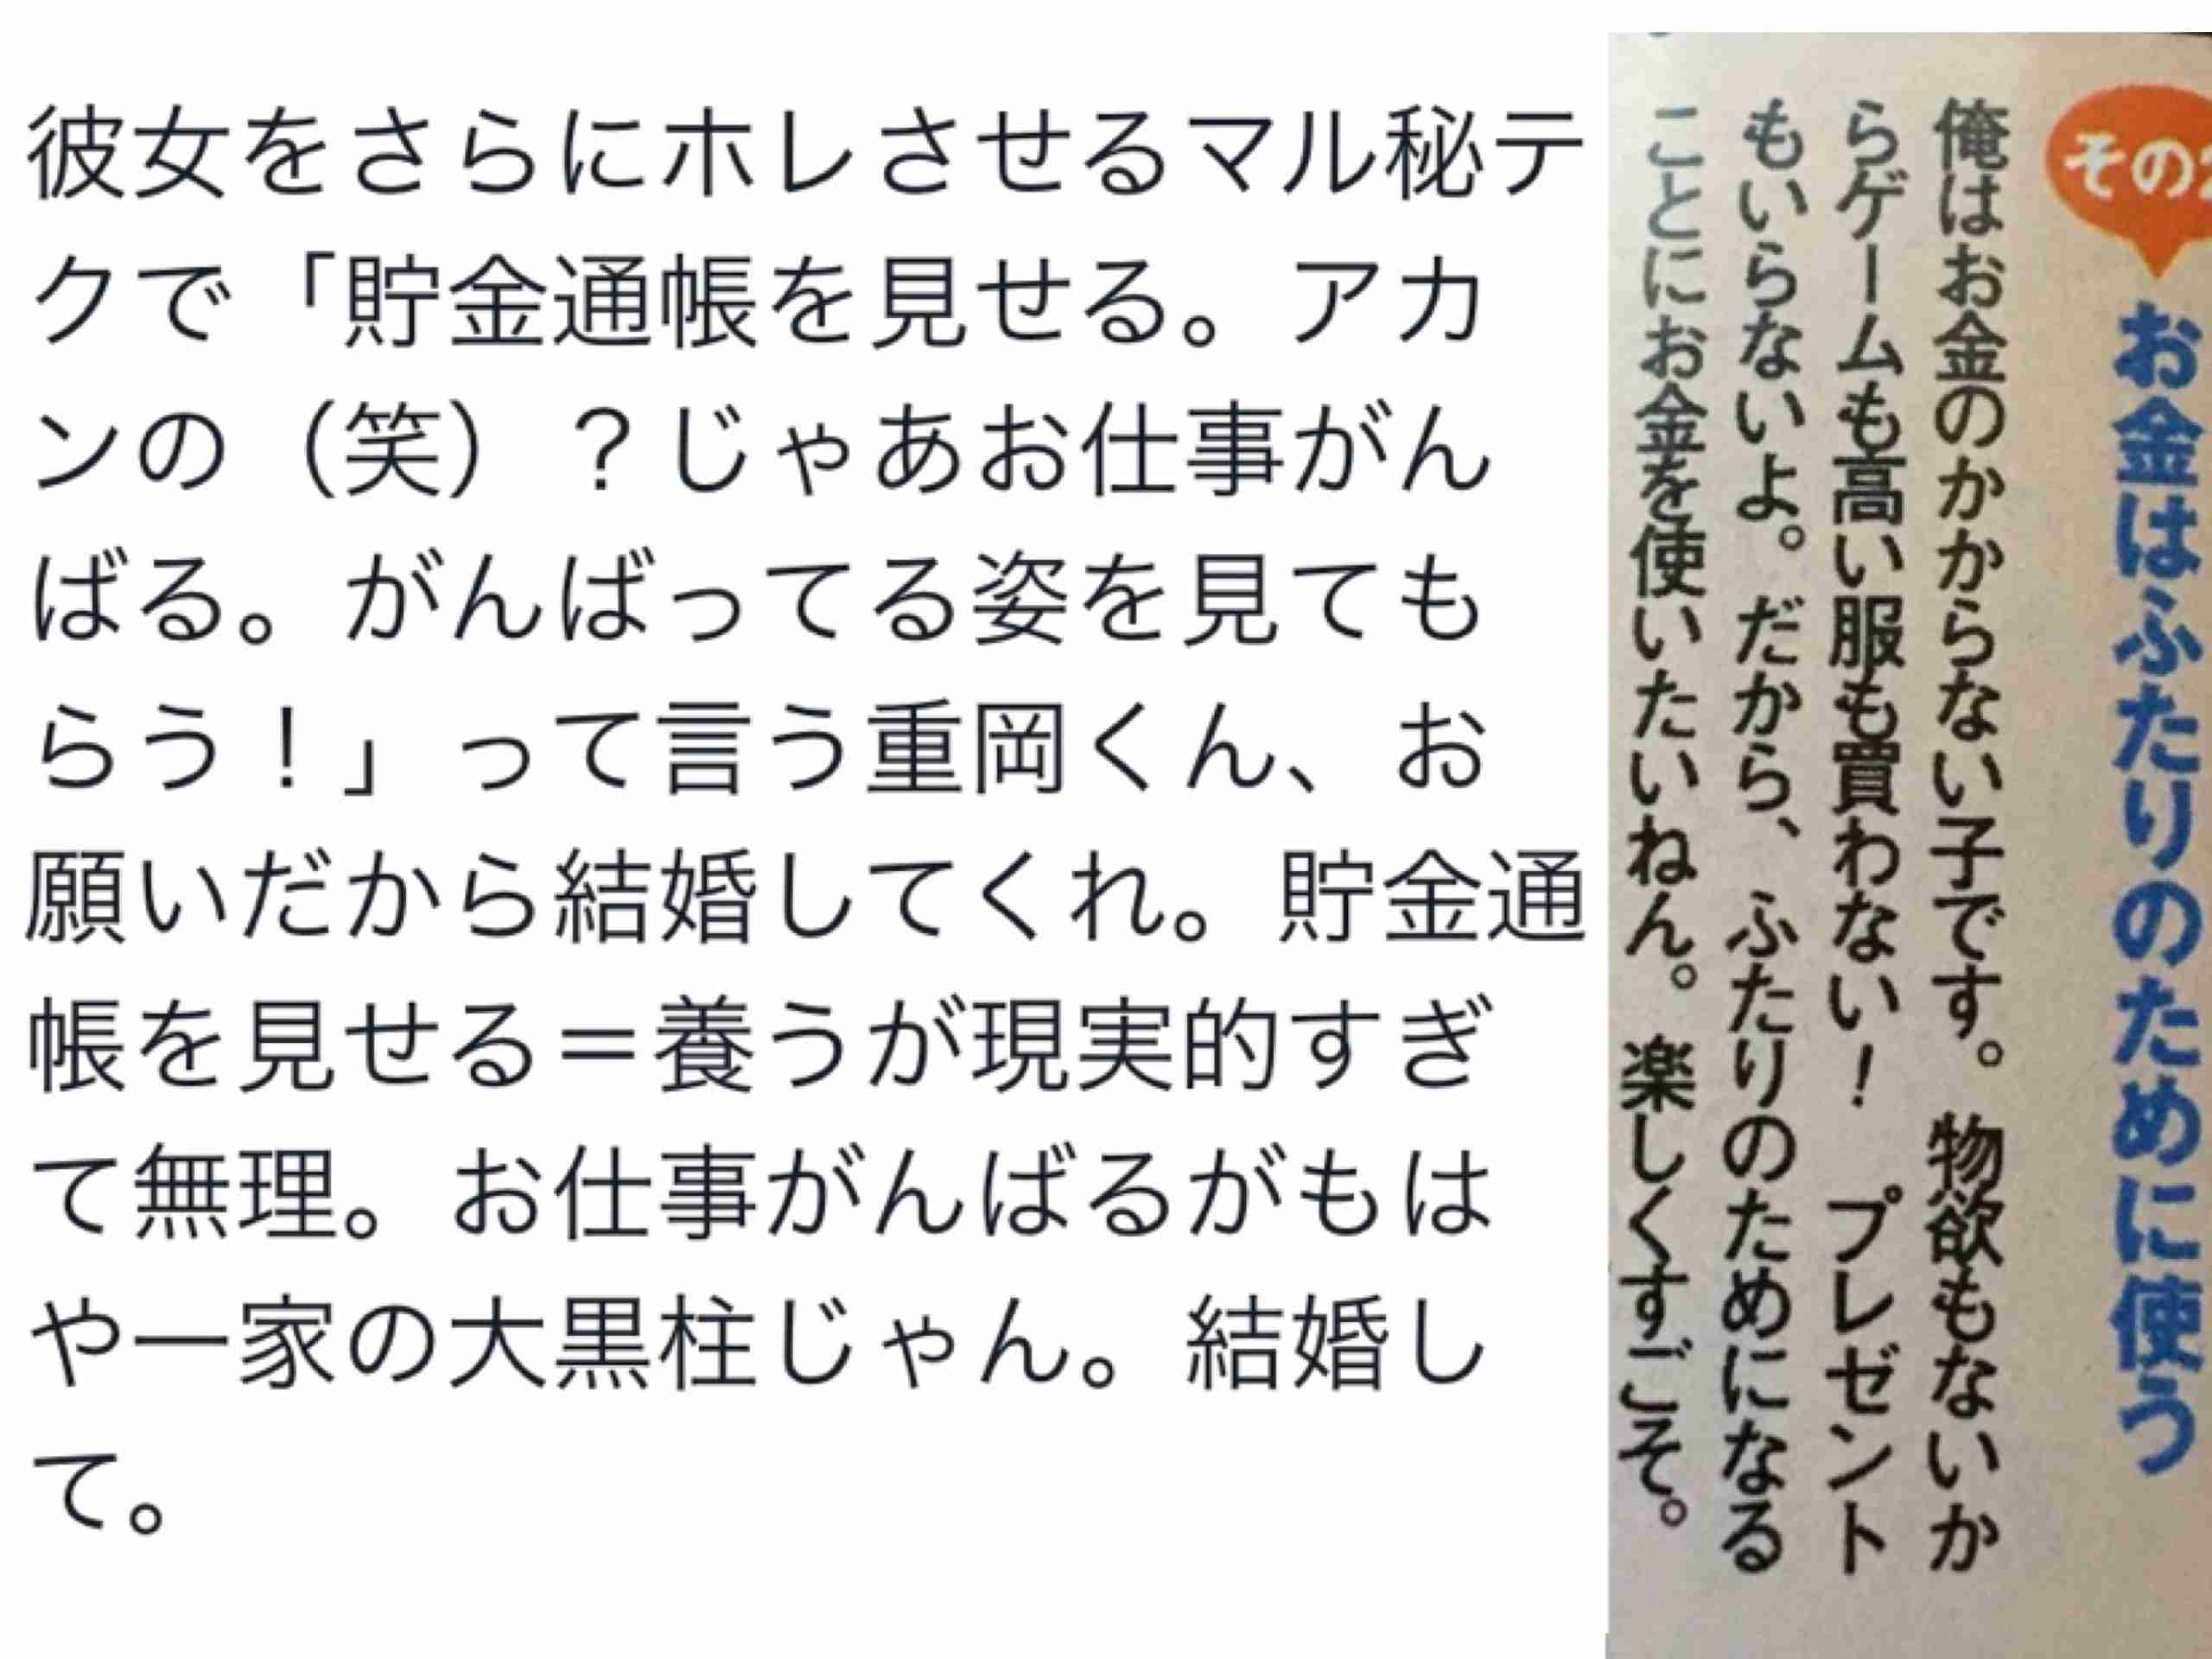 彼女をさらにホレさせるマル秘テ
クで「貯金通帳を見せる。アカ
ンの（笑）？じゃあお仕事がん
ばる。がんばってる姿を見ても
らう！」って言う重岡くん、お
願いだから結婚してくれ。貯金通
帳を見せる＝養うが現実的すぎ
て無理。お仕事がんばるがもは
や一家の大黒柱じゃん。結婚し
て。
その2
お金はふたりのために使う
俺はお金のかからない子です。物欲もないか
らゲームも高い服も買わない！　プレゼント
もいらないよ。だから、ふたりのためになる
ことにお金を使いたいねん。楽しくすごそ。